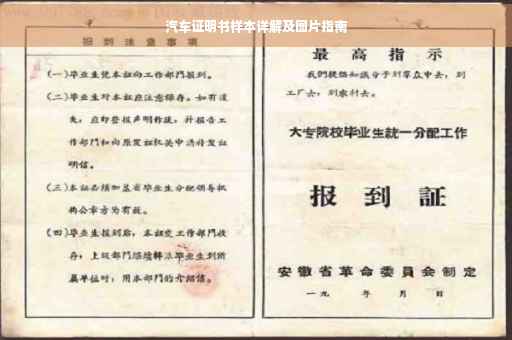 汽车证明书样本详解及图片指南
报到注意事项
(一)毕业生凭本证向工作部门报到。
(二)毕业生对本证应注意保存。如有遗
失，应即登报声明作废，并报告工
作部门和向原发证机关申请补发证
明信。
(三)本证必须加盖省毕业生分配领导机
构公章方为有效。
(四)毕业生报到后，本证交工作部门收
存；上级部门继续转派毕业生到所
属单位时，用本部门的介绍信。
最高指示
我们提倡知识分子到群众中去，到
工厂去，到农村去。
大专院校毕业生统一分配工作
报到证
安徽省革命委员会制定
一九 年 月 日